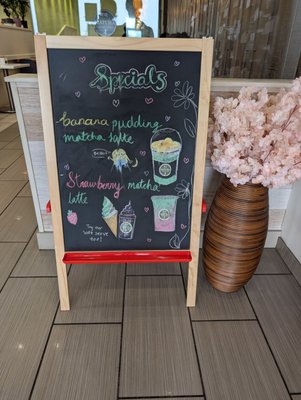 Specials
banana pudding
matcha latte
Strawberry matcha
latte
Try our
soft serve
too!